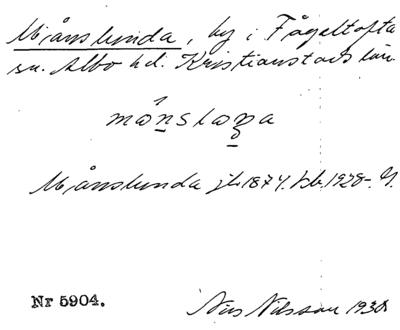 Månslunda, by i Fågeltofta
sn. Albo hd. Kristianstads län.
månsloṉa
Månslunda jb 1874. kb. 1928-.
Nr 5904.
Nils Nilsson 1938